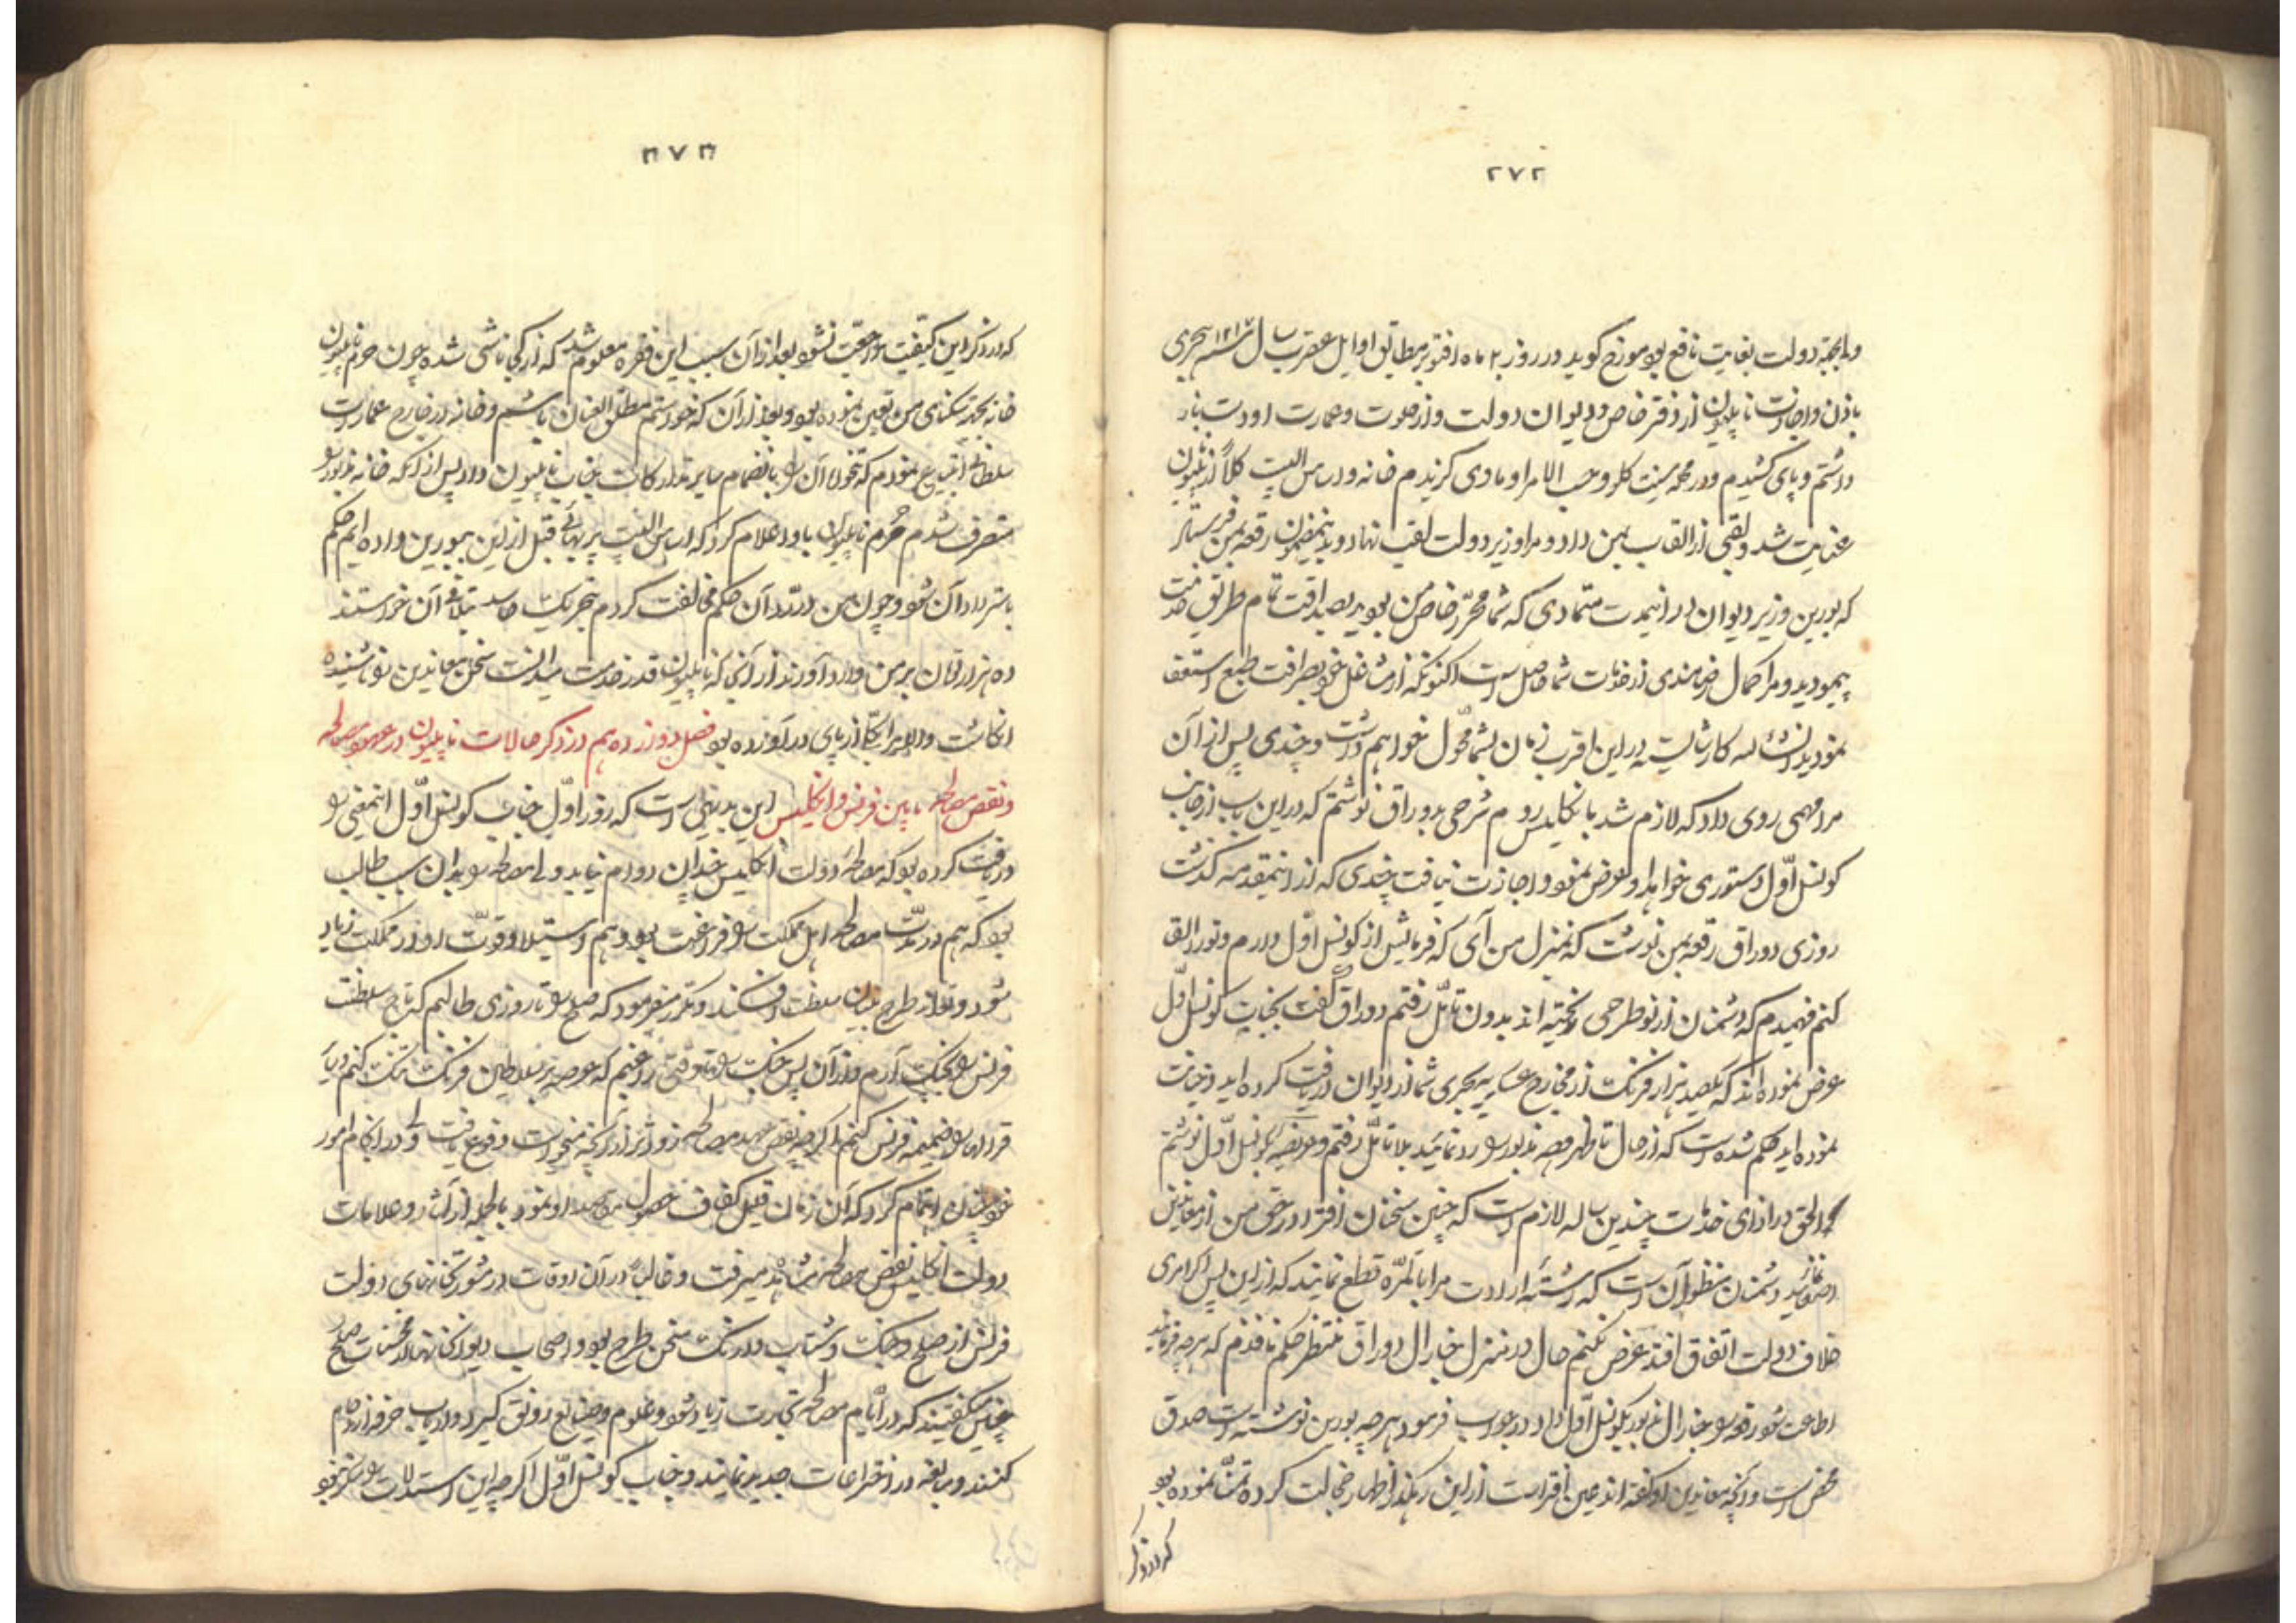 ۲۷۲
و بالجمله دولت بغایت نافع بود مورخ گوید در روز ۲ ماه اقتوبر مطابق اوایل عقرب سال ۱۲۱۷ هجری
باذن و اجازت ناپلیون از دفتر خاص و دیوان دولت و از صوت و عمارت او دست باز
داشتم و پای کشیدم و در محله سینت کلو و حسب الامر او مادی گزیدم خانه و اساس البیت کلاً از ناپلیون
عنایت شد و لقبی از القاب بمن داد و مرا وزیر دولت لقب نهاد و بدینمضمون رقعه بمن فرستاد
که بورین وزیر دیوان در اینمدت متمادی که شما محرّر خاص من بودید بصداقت تمام طریق خدمت
پیمودید و مرا کمال رضامندی از خدمات شما حاصل است اکنونکه از مشاغل خود بصرافت طبع استعفا
نمودید انشاءالله کار شایسته در این اقرب زمان بشما محوّل خواهم داشت و چندی پس از آن
مرا مهمی روی داد که لازم شد بانگلیس روم شرحی بدوراق نوشتم که در این باب از جانب
کونسل اوّل دستوری خواهد او عرض نمود و اجازت نیافت چندی که از اینمقدمه گذشت
روزی دوراق رقعه بمن نوشت که بمنزل من آی که فرمایش از کونسل اوّل دارم و تو را القا
کنم فهمیدم که دشمنان از نو طرحی ریخته اند بدون تأمّل رفتم دوراق گفت بجناب کونسل اوّل
عرض نموده اند که یکصد هزار فرنک از مخارج عساکر بحری شما از دیوان دریافت کرده اید و خیانت
نموده اید حکم شده است که از حال تا ظهر وجه مذبور را رد نمائید بلا تأمّل رفتم و عریضه بکونسل اوّل نوشتم
که الحق در ازای خدمات چندین ساله لازم است که چنین سخنان افترا در حق من از معاندین
اصغا نمائید دشمنان منظور آن است که رشته ارادت مرا بالمرّه قطع نمایند که از این پس اگر امری
خلاف دولت اتفاق افتد عرض نکنم حال در منزل جنارال دوراق منتظر حکم نافذم که هر چه فرمائید
اطاعت شود رقعه را جنارال مذبور بکونسل اوّل داد در جواب فرمود هر چه بورین نوشته است صدق
محض است و آنچه معاندین گفته اند عین افتراست از این رهگذر اظهار خجالت کرده تمنّا نموده بود
که در ذکر
۲۷۳
که در ذکر این کیفیت مراجعت نشود بعد از آن سبب این فقره معلوم شد که از کی ناشی شده چون حرم ناپلیون
خانه بجهة سکنای من تعیین نموده بود و بعد از آن که خواستم مطلق العنان باشم و خانه در خارج عمارت
سلطانی ابتیاع نمودم که تخولا آن را بانضمام سایر تدارکات جناب ناپلیون داد پس از آنکه خانه مذبور را
متصرف شدم حرم ناپلیون باو اعلام کرد که اساس البیت پر بهائی قبل از این ببورین داده ایم حکم
باسترداد آن شود و چون من در ردّ آن حکم مخالفت کردم بتحریک حاسد بتلافی آن خواستند
ده هزار تومان بر من وارد آورند از آنجا که ناپلیون قدر خدمت میدانست سخن معاندین نوشنیده
انگاشت و امیر آنجا از پای درآورده بود فصل دوازدهم در ذکر حالات ناپلیون در عهد مصالحه
و نقض مصالحه مابین فرنس و انگلیس این بدیهی است که روز اوّل جناب کونسل اوّل اینمعنی را
دریافت کرده بود که مصالحه دولت انگلیس چندان دوام نیابد ولی مصالحه را بدان سبب طالب
بود که هم در مدّت مصالحه اهل مملکت را فراغت بود و هم استیلا و قوّت او در مملکت زیاد
شود و تواند طرح بنیان سلطنت افکند و مکرر میفرمود که صلح را تا روزی طالبم که تاج سلطنت
فرنس را بچنگ آرم و از آن پس جنگ را تا وقتی راغبم که عرصه بر سلاطین فرنک تنگ کنم و یا
قرالها را ضمیمه فرنس کنم اگر چه نقض عهد مصالحه زودتر از آنچه میخواست وقوع یافت ولی در انجام امور
خود چنان اهتمام کرد که آن زمان قلیل کفاف حصول مقصد او نمود بالجمله از آثار و علامات
دولت انگلیس نقض مصالحه مشاهد میرفت و غالباً در آن اوقات در مشورتخانهای دولت
فرنس از صلح و جنگ و شتاب و درنگ سخن طرح بود و اصحاب دیوانخانها از محسنات صلح
چنین میگفتند که در ایّام مصالحه تجارت زیاد شود و علوم و صنایع رونق گیرد و ارباب حرفه ازدحام
کنند و مبالغه در اختراعات جدید نمایند و جناب کونسل اوّل اگر چه این استدلالات را